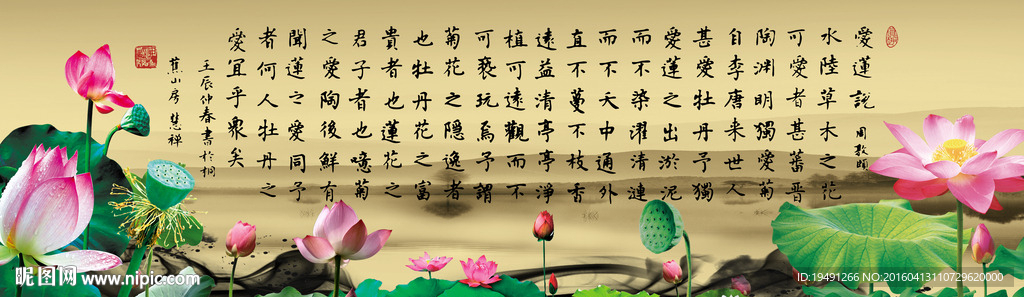 愛蓮說
周敦頤
水陸草木之花
可愛者甚蕃晉
陶渊明獨愛菊
自李唐来世人
甚愛牡丹予獨
愛蓮之出淤泥
而不染濯清漣
而不夭中通外
直不蔓不枝香
遠益清亭亭淨
植可遠觀而不
可褻玩焉予謂
菊花之隱逸者
也牡丹花之富
貴者也蓮花之
君子者也噫菊
之愛陶後鮮有
聞蓮之愛同予
者何人牡丹之
愛宜乎衆矣
壬辰仲春書於桐
蕉山房慧禅
昵图网 www.nipic.com
ID:19491266 NO:20160413110729620000